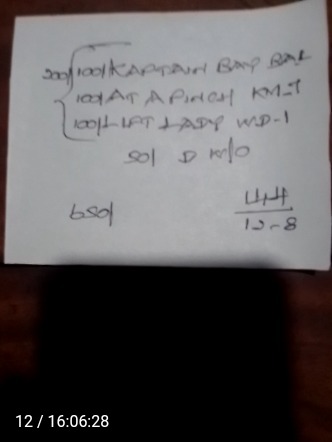 200/ 100/ KAPTAIN BAY BAL
100/ AT A PINCH KM-7
100/ LIFT LADY WD-1
50/ D W/O
650/ 44
12-8
12 / 16:06:28